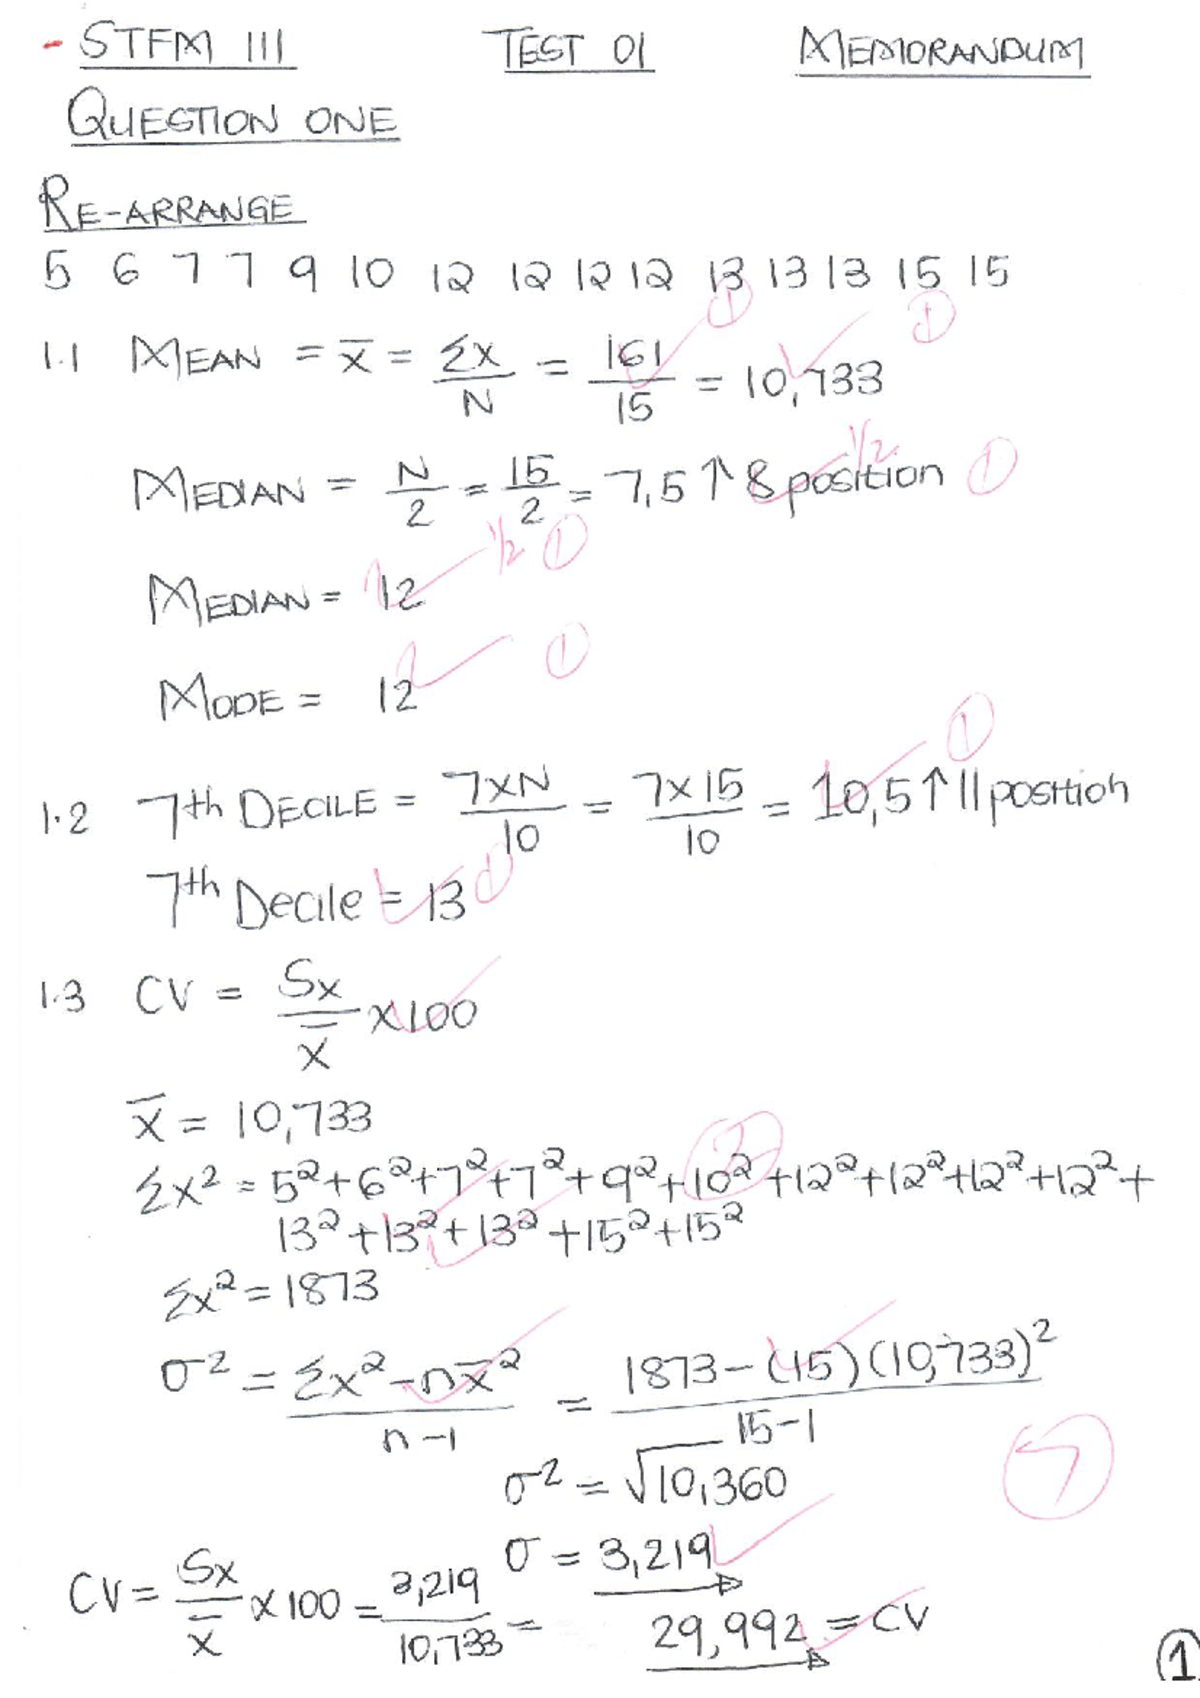 - STFM 111 TEST 01 MEMORANDUM
QUESTION ONE
RE-ARRANGE
5 6 7 7 9 10 12 12 12 12 13 13 13 15 15
1.1 MEAN = x̄ = Σx/N = 161/15 = 10,733
1 1
MEDIAN = N/2 = 15/2 = 7,5 ↑ 8 position
1/2 1
MEDIAN = 12
1/2 1
MODE = 12
1
1.2 7th DECILE = 7xN/10 = 7x15/10 = 10,5 ↑ 11 position
1
7th Decile = 13
1
1.3 CV = Sx/x̄ x100
x̄ = 10,733
Σx² = 5²+6²+7²+7²+9²+10²+12²+12²+12²+12²+
13²+13²+13²+15²+15²
2
Σx² = 1873
σ² = Σx²-nx̄²/n-1 = 1873-(15)(10,733)²/15-1
7
σ² = √10,360
σ = 3,219
CV = Sx/x̄ x100 = 3,219/10,733 = 29,992 = CV
1